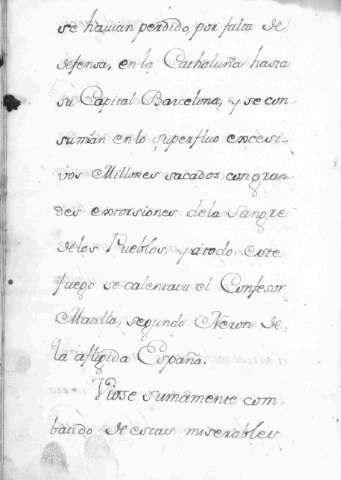 se havian perdido, por falta de
defensa, en la Cathaluña hasta
su Capital Barcelona, y se con
sumian en lo superfluo excesi-
vos Millones sacados con gran
des extorsiones de la Sangre
de los Pueblos, y à todo este
fuego se calentava el Confesor
Matilla, segundo Neron de
la afligida España.
Viose sumamente com
batido de estas miserables